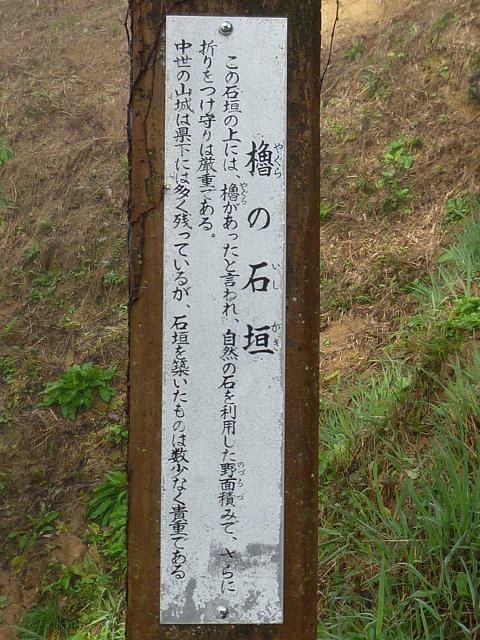 櫓の石垣
やぐら
いしがき
この石垣の上には、櫓があったと言われ、自然の石を利用した野面積みで、さらに
やぐら
のづらづ
折りをつけ守りは厳重である。
中世の山城は県下には多く残っているが、石垣を築いたものは数少なく貴重である